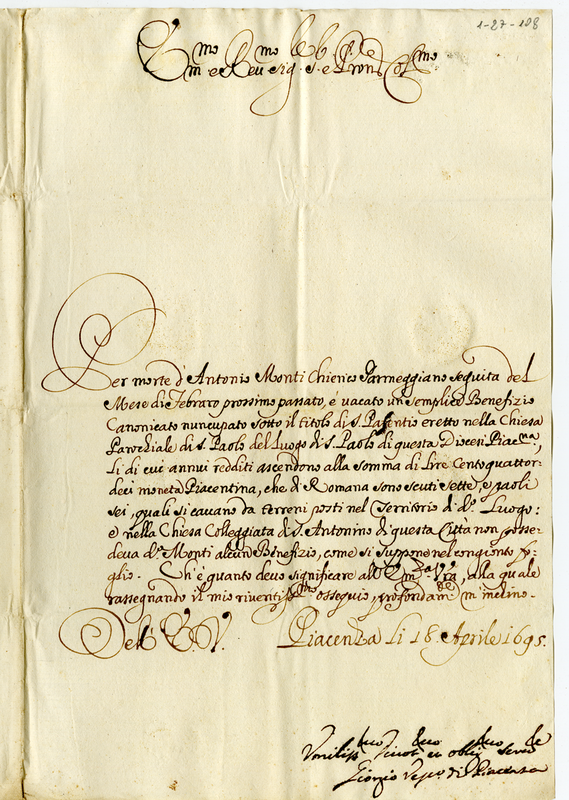 1-27-108
Em̃o e Reu̅mo Sig.r S.r e Pron̅ Col̅mo
Per morte d'Antonio Monti Chierico Parmeggiano seguita del
Mese di Febraro prossimo passato, è vacato un semplice Benefizio
Canonicato nuncupato sotto il titolo di S. eretto nella Chiesa
Parochiale di S. Paolo del Luogo di S. Paolo di questa Diocesi Piacna,
li di cui annui redditi ascendono alla somma di lire Centoquattor-
deci moneta Piacentina, che di Romana sono scuti sette, e paoli
sei, quali si cavano da terreni posti nel Territorio di do Luogo:
e nella Chiesa Colleggiata di S. Antonino di questa Città non posse-
deva do Monti alcun Benefizio, come si suppone nel congionto fo-
glio. Ch'è quanto devo significare all' Emza Vra, alla quale
rassegnando il mio riventissmo ossequio, profondamte m'inclino.
Dell' E. V. Piacenza li 18 Aprile 1695.
Umiliss.mo Divot.mo ed obblig.mo Serv.re
Giorgio Vesco di Piacenza